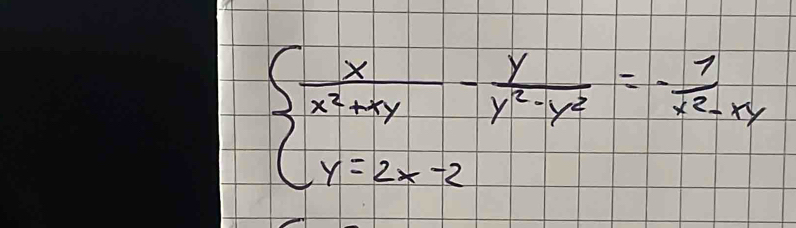 { x/(x²+xy) - y/(y²-y²) = -1/(x²-xy)
y=2x-2